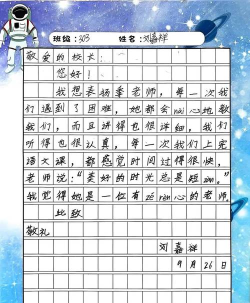 班级：303 姓名：刘嘉祥
敬爱的校长：
您好！
我想表扬季老师，每一次我
们遇到了困难，她都会nài心地教
我们，而且讲得也很详细，我们
听得也很认真，每一次我们上完
语文课，都感觉时间过得很快，
老师说：“美好的时光总是短zàn。”
我觉得她是一位有zé rèn心的老师。
此致
敬礼
刘嘉祥
9月26日